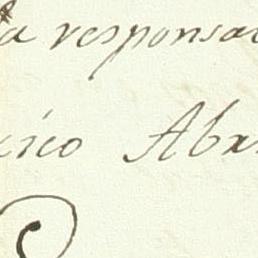 a responsa
isco Abr